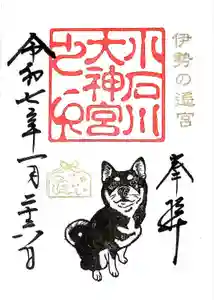 伊勢の遥宮
奉拝
小石川
大神宮
之印
令和七年一月二十六日